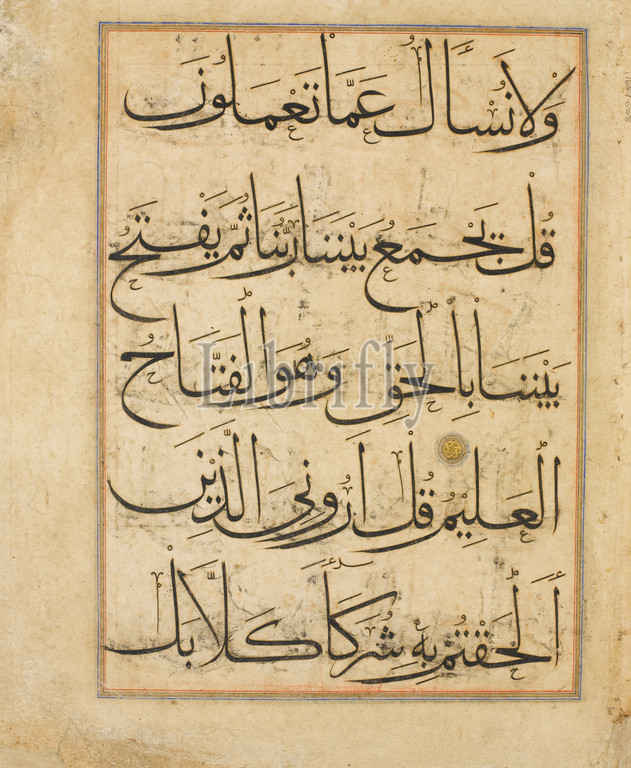 وَلَا نُسْأَلُ عَمَّا تَعْمَلُونَ
قُلْ يَجْمَعُ بَيْنَنَا رَبُّنَا ثُمَّ يَفْتَحُ
بَيْنَنَا بِالْحَقِّ وَهُوَ الْفَتَّاحُ
الْعَلِيمُ قُلْ أَرُونِيَ الَّذِينَ
أَلْحَقْتُمْ بِهِ شُرَكَاءَ كَلَّا بَلْ
Librifly